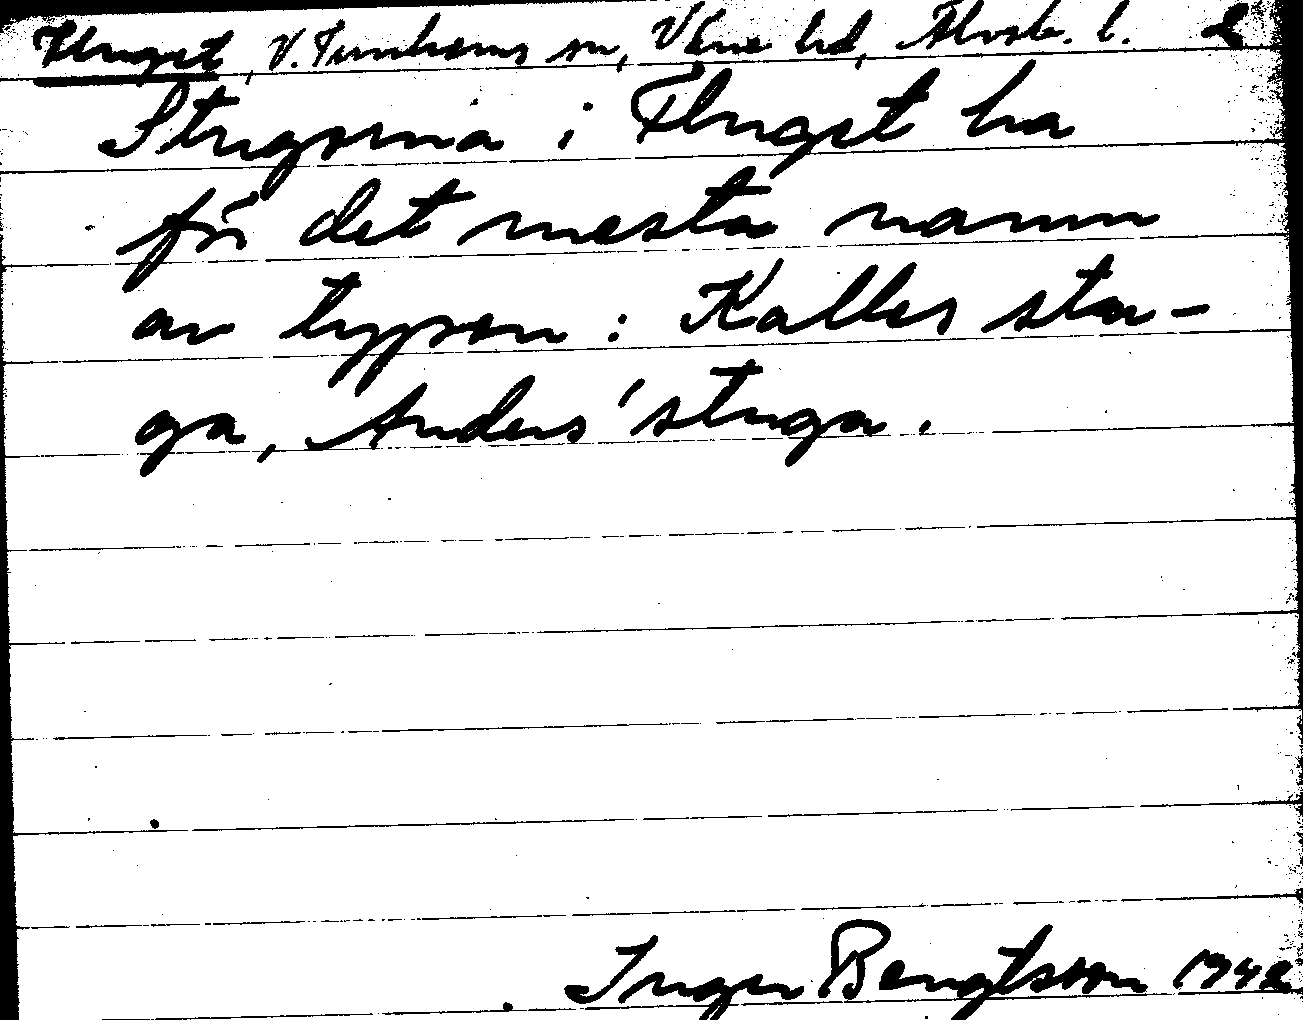 Fluget, V. Tunhems sn, Väne hd, Älvsb. l. 2
Stugorna i Fluget ha
för det mesta namn
av typen: Kalles stu-
ga, Anders' stuga.
Inger Bengtsson 1942